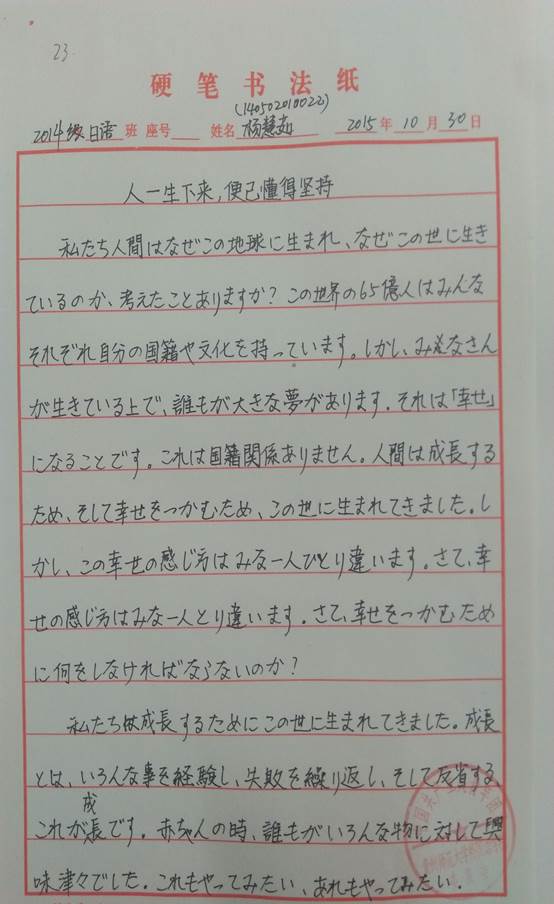 23
硬笔书法纸
(140502010022)
2014级日语班 座号 姓名杨慧茹 2015年10月30日
人一生下来,便已懂得坚持
私たち人間はなぜこの地球に生まれ、なぜこの世に生き
ているのか、考えたことありますか？この世界の65億人はみんな
それぞれ自分の国籍や文化を持っています。しかし、みなさん
が生きている上で、誰もが大きな夢があります。それは「幸せ」
になることです。これは国籍関係ありません。人間は成長する
ため、そして幸せをつかむため、この世に生まれてきました。し
かし、この幸せの感じ方はみな一人ひとり違います。さて、幸
せの感じ方はみな一人とり違います。さて、幸せをつかむため
に何をしなければならないのか？
私たちは成長するためにこの世に生まれてきました。成長
とは、いろんな事を経験し、失敗を繰り返し、そして反省する、
これが成長です。赤ちゃんの時、誰もがいろんな物に対して興
味津々でした。これもやってみたい、あれもやってみたい.